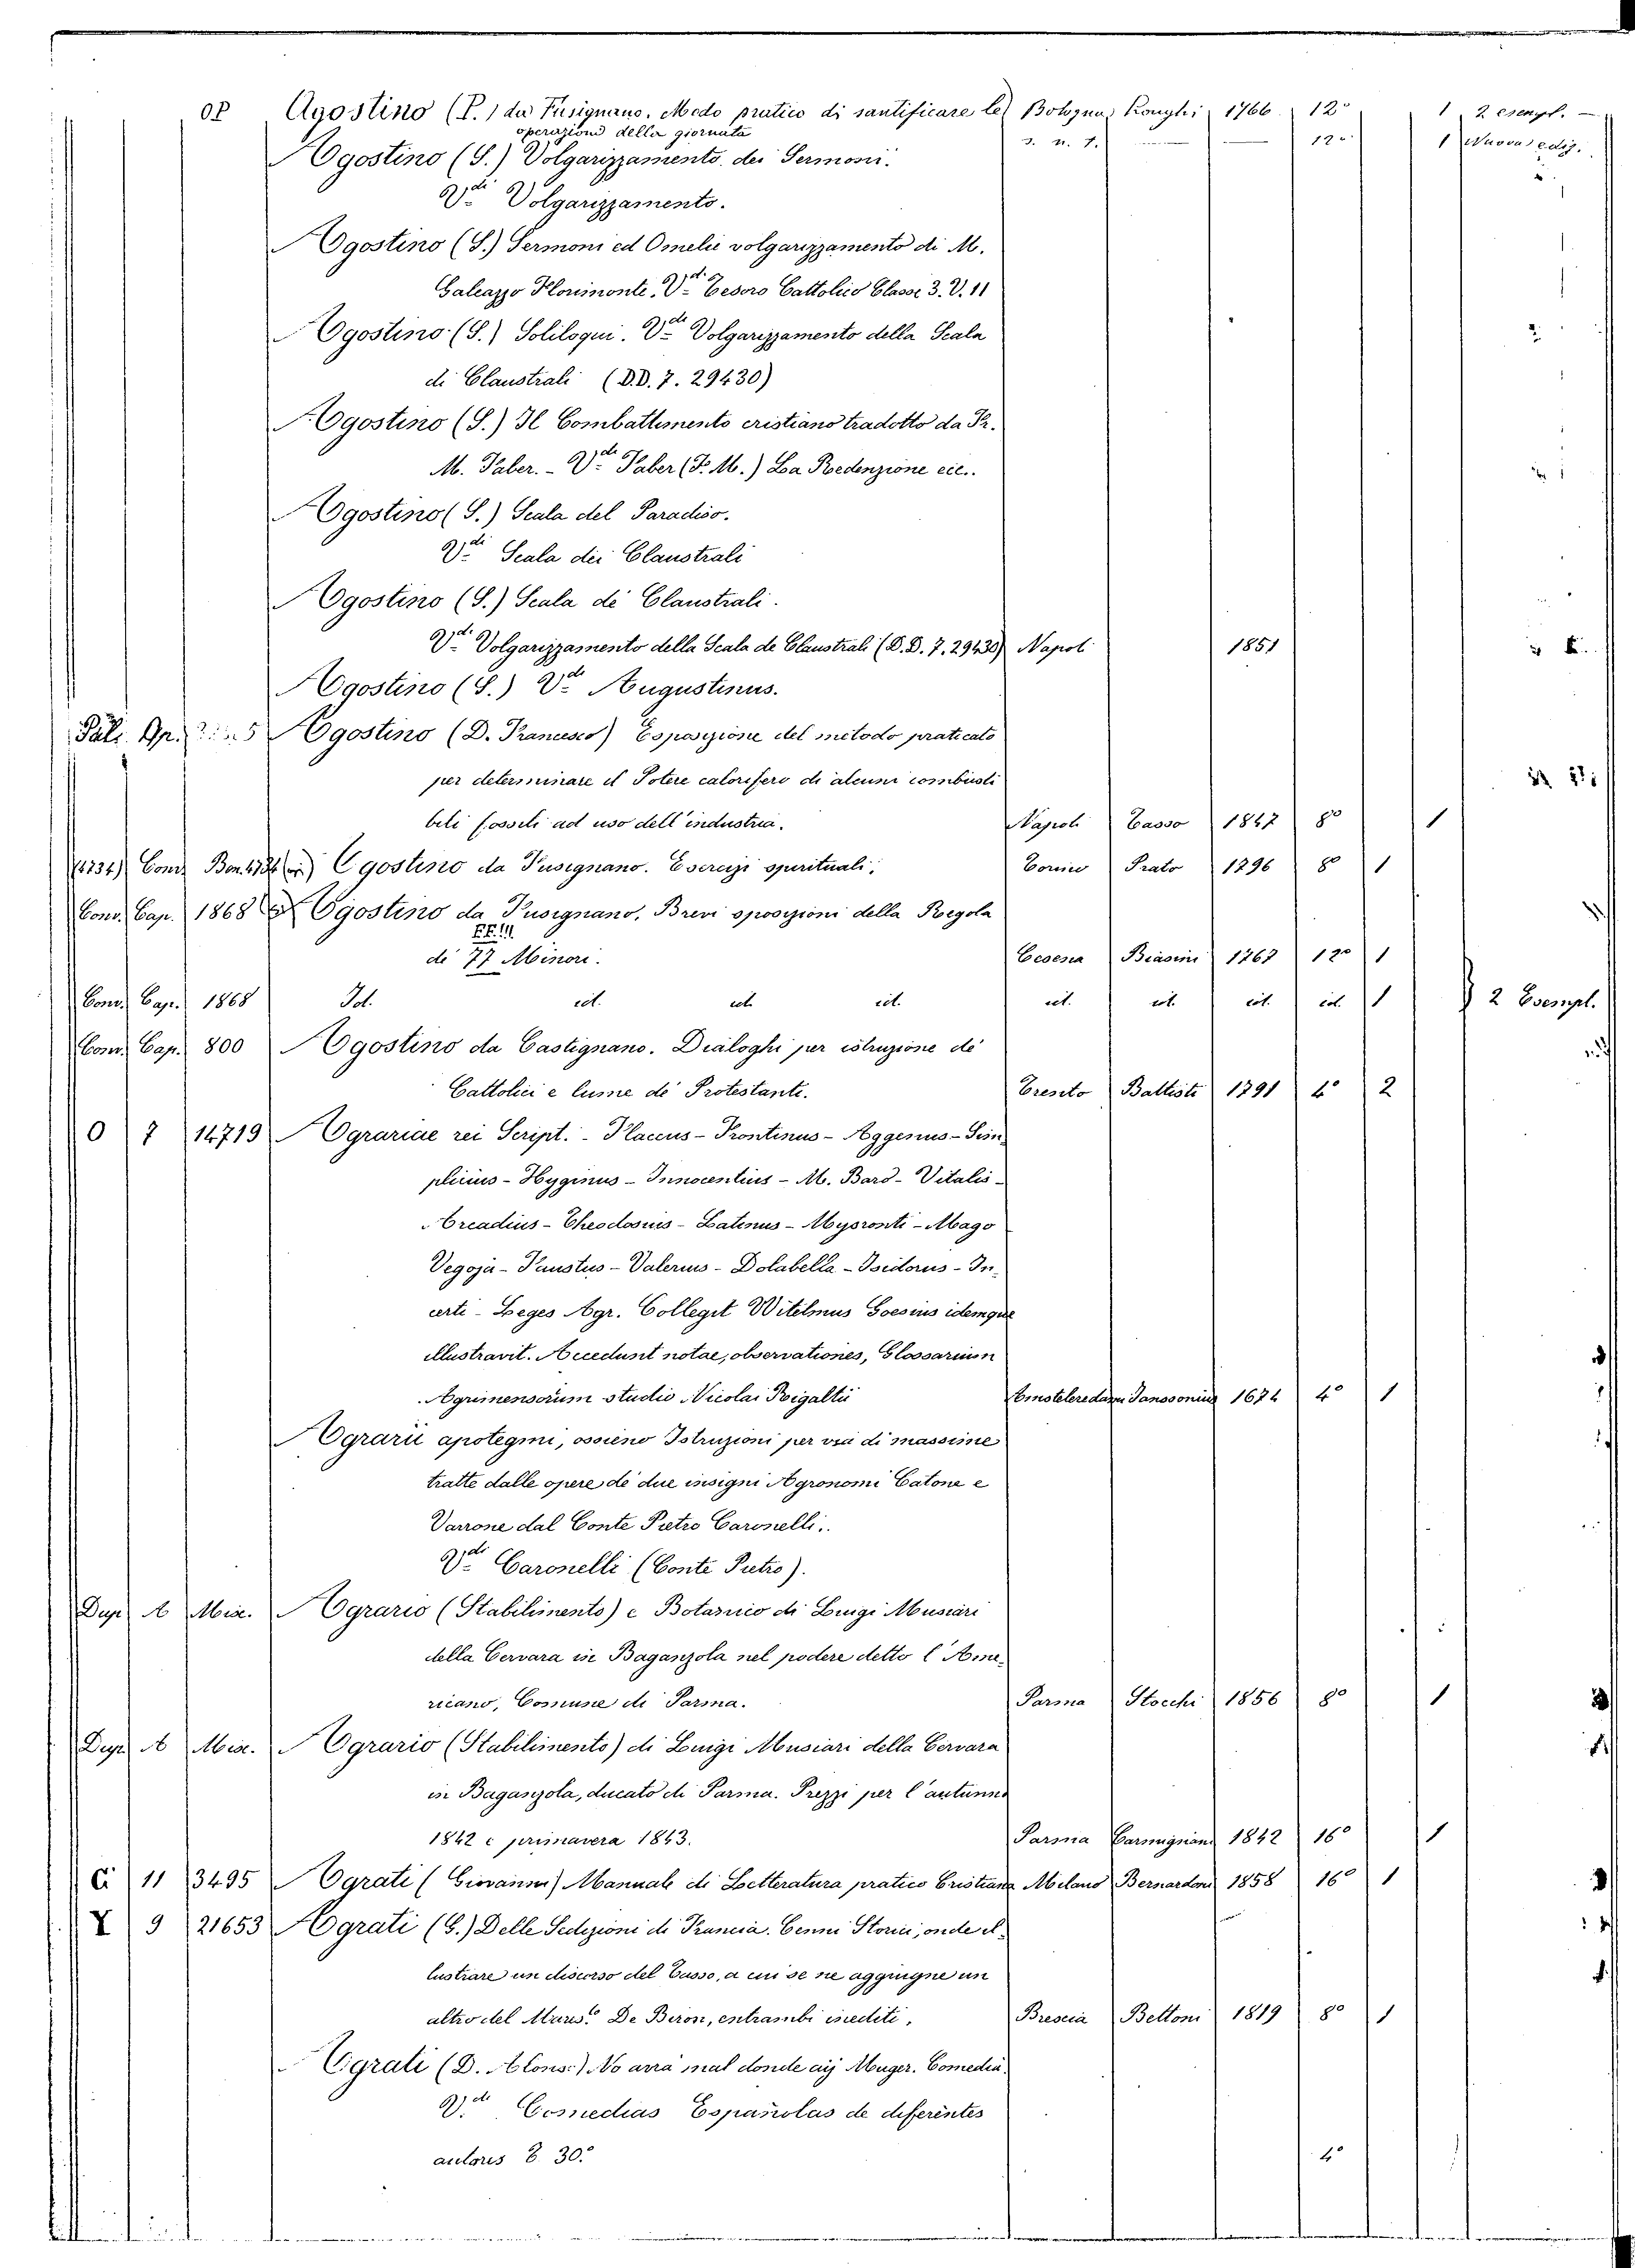 Agostino (P.) da Fusignano. Modo pratico di santificare le Bologna Longhi 1766 12° 1 2. esempl. —
operazioni della giornata s. n. t. 12° 1 Nuova ediz.
Agostino (S.) Volgarizzamento dei Sermoni.
V.di Volgarizzamento.
Agostino (S.) Sermoni ed Omelie volgarizzamento di M.
Galeazzo Florimonte. V.di Tesoro Cattolico Classe 3. V. 11
Agostino (S.) Soliloqui. V.di Volgarizzamento della Scala
di Claustrali (D.D. 7. 29430)
Agostino (S.) Il Combattimento cristiano tradotto da Fr.
M. Faber. - V.di Faber (F. M.) La Redenzione ecc.
Agostino (S.) Scala del Paradiso.
V.di Scala dei Claustrali
Agostino (S.) Scala de' Claustrali.
V.di Volgarizzamento della Scala de Claustrali (D. D. 7. 29430) Napoli 1851
Agostino (S.) V.di Augustinus.
Agostino (D. Francesco) Esposizione del metodo praticato
per determinare il Potere calorifero di alcuni combusti
bili fossili ad uso dell'industria. Napoli Tasso 1847 8° 1
Agostino da Fusignano. Esercizi spirituali, Torino Prato 1796 8° 1
Conv. Cap. 1868 Agostino da Fusignano, Brevi sposizioni della Regola
FF.M.
de' 77 Minori. Cesena Biasini 1767 12° 1
Conv. Cap. 1868 Id. id. id. id. id. id. id. id. 1 2 Esempl.
Conv. Cap. 800 Agostino da Castignano. Dialoghi per istruzione de'
Cattolici e lume de' Protestanti. Trento Battisti 1791 4° 2
O 7 14719 Agrariae rei Script. - Flaccus - Frontinus - Aggenus - Sim
plicius - Hyginus - Innocentius - M. Baro - Vitalis -
Arcadius - Theodosius - Latinus - Mysronti - Mago
Vegoja - Faustus - Valerius - Dolabella - Isidorus - In-
certi - Leges Agr. Collegit Witelmus Goesius idemque
illustravit. Accedunt notae, observationes, Glossarium
Agrimensorum studio Nicolai Rigaltii Janssonius 1674 4° 1
Agrarii apotegmi, ossieno Istruzioni per via di massime
tratte dalle opere de' due insigni Agronomi Catone e
Varrone dal Conte Pietro Caronelli.
V.di Caronelli (Conte Pietro).
Dup. A Misc. Agrario (Stabilimento) e Botanico di Luigi Musiari
della Cervara in Baganzola nel podere detto l'Ame-
ricano, Comune di Parma. Parma Stocchi 1856 8° 1
Dup. A Misc. Agrario (Stabilimento) di Luigi Musiari della Cervara
in Baganzola, ducato di Parma. Prezzi per l'autunno
1842 e primavera 1843. Parma Carmignani 1842 16° 1
C 11 3495 Agrati (Giovanni) Manuale di Letteratura pratico Cristiana Milano Bernardoni 1858 16° 1
X 9 21653 Agrati (G.) Delle Sedizioni di Francia. Cenni Storici, onde il-
lustrare un discorso del Tasso, a cui se ne aggiugne un
altro del Mares. De Biron, entrambi inediti, Brescia Bettoni 1819 8° 1
Agrati (D. Alons.) No arra mal donde aij Muger. Comedia.
V.di Comedias Españolas de diferentes
autores T 30.° 4°